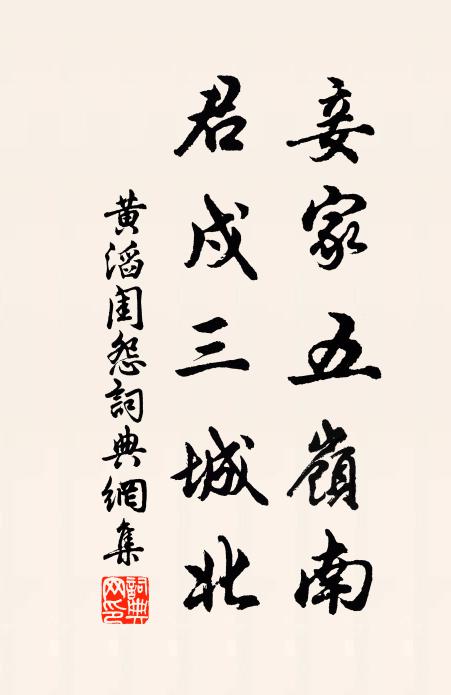 妾家五嶺南
君戍三城北
黄滔閨怨詞典網集
詞典網印